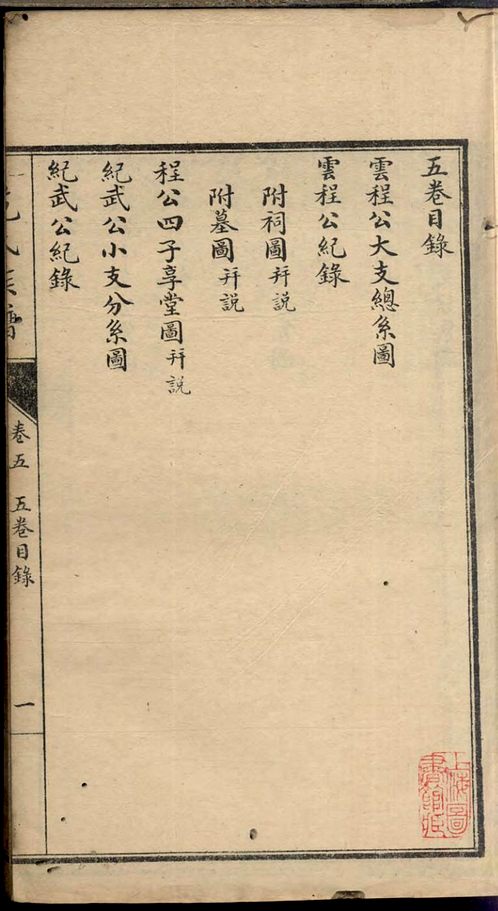 五卷目錄
雲程公大支總系圖
雲程公紀錄
附祠圖幷説
附墓圖幷説
程公四子享堂圖幷説
紀武公小支分系圖
紀武公紀錄
卷五 五卷目錄
一
上海圖書館藏